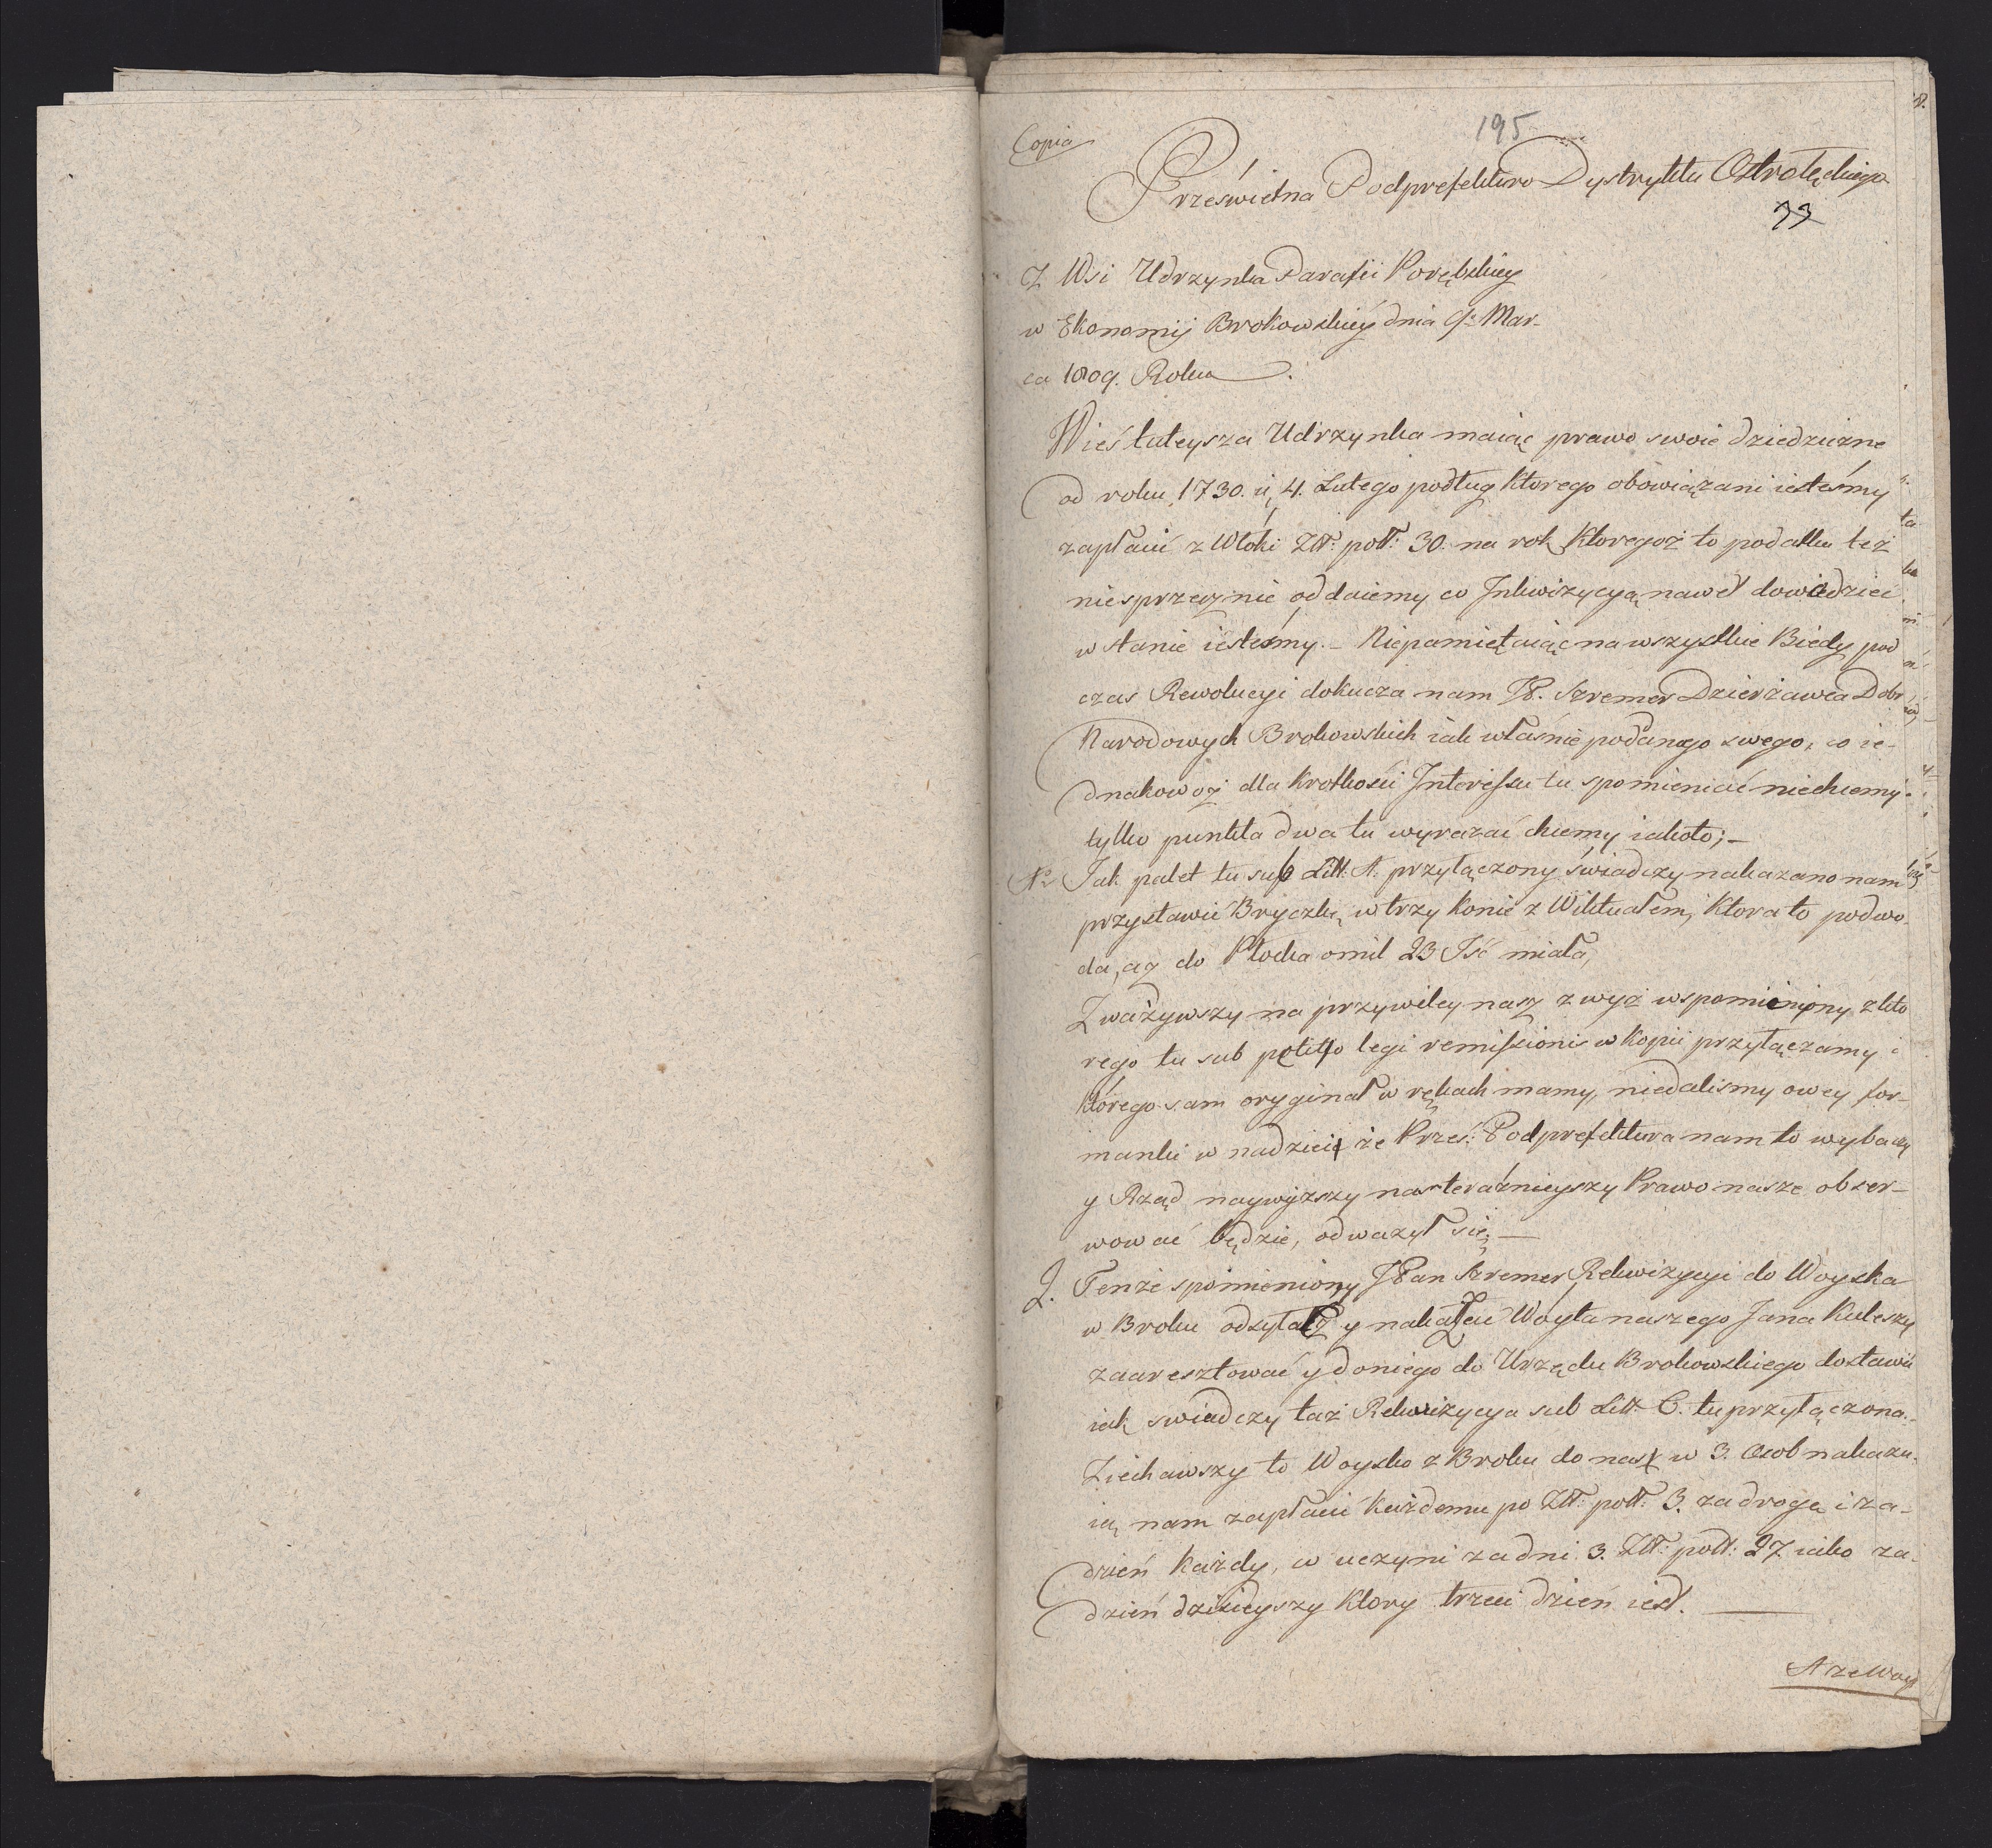 195
Copia
Prześwietna Podprefekturo Dystryktu Ostrołęckiego
33
Z Wsi Udrzynka Parafii Porębskiey
w Ekonomij Brokowskiey dnia 9º Mar-
ca 1809. Roku.
Wieś tuteysza Udrzynka maiąc prawo swoie dziedziczne
od roku 1730. 4. Lutego podług ktorego obowiązani iesteśmy
zapłacić z Włoki Złł: poll: 30. na rok, Ktoregoż to podatku też
niesprzecznie oddaiemy co Inkwizycyą nawet dowiedzieć
w stanie iesteśmy. – Niepamiętaiąc na wszystkie Biedy pod
czas Rewolucyi dokucza nam JP. Szremer Dzierżawca Dobr
Narodowych Brokowskich iak właśnie podanego swego, co ie-
dnakowoż dla krotkości Interessu tu spomieniać niechcemy.
tylko punkta dwa tu wyrazać chcemy iakoto; –
Nº Jak palet tu sub Litt: A. przyłączony świadczy nakazano nam
przystawić Bryczkę w trzy konie z Wiktuałem, Ktora to podwo-
da, aż do Płocka o mil 23 Iść miała,
Zważywszy na przywiley nasz zwyż wspomieniony z kto
rego tu sub petito legi remissionis w Kopii przyłączamy i
Którego sam oryginał w rękach mamy, niedalismy owey for-
manki w nadzieie że Prześ: Podprefektura nam to wybaczy
y Rząd naywyższy nas teraźnieyszy Prawo nasze obser-
wować będzie, odwazył się; –
2. Tenże spomieniony JPan Szremer Rekwizycyi do Woyska
w Broku odsyła y nakazał Woyta naszego Jana Kuleszy
zaaresztować y doniego do Urzędu Brokowskiego dostawić
iak swiadczy taż Rekwizycya sub Litt. C. tu przyłączona.
Ziechawszy to Woysko z Broku do nas w 3. Osob nakazu-
ią nam zapłacić Każdemu po Złł: poll: 3. za drogę i za-
dzień Każdy, co uczyni za dni 3. Złł: poll: 27. iako za-
dzień dzisieyszy Ktory trzeci dzień iest.
A ze Woy